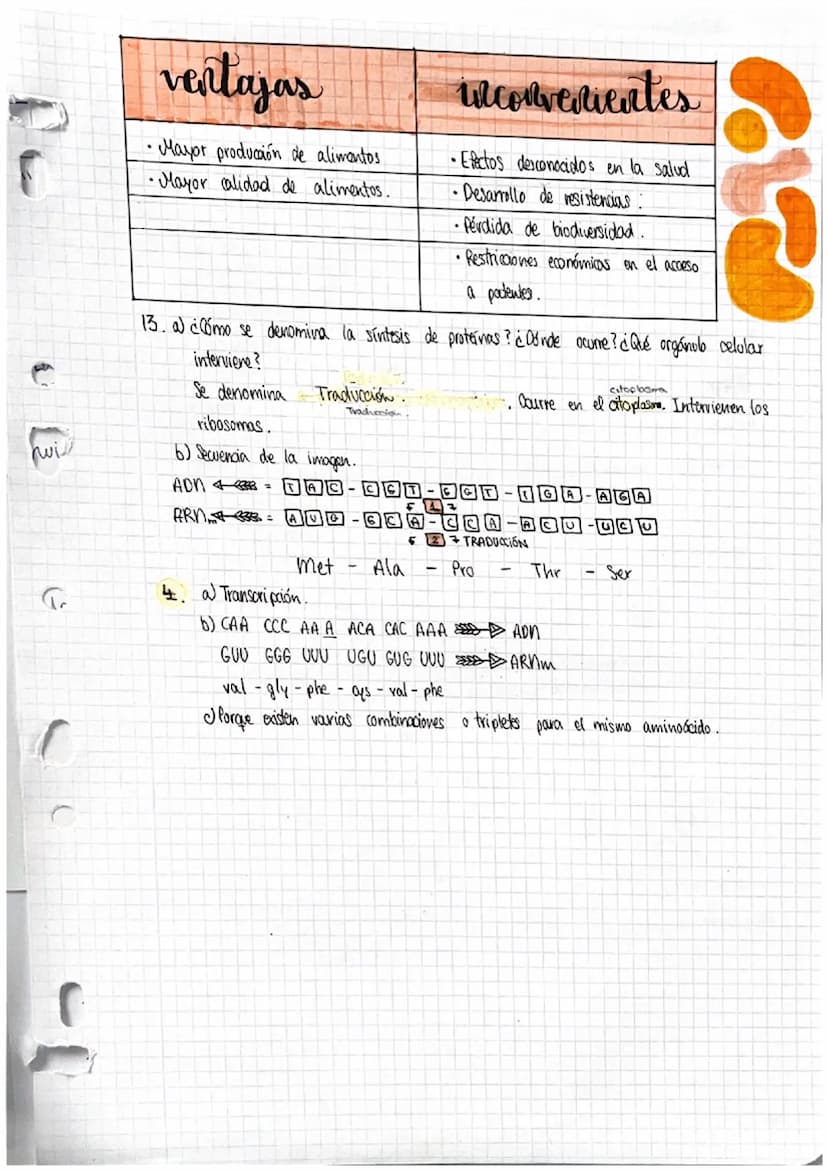 ventajas
inconvenientes
· Mayor producción de alimentos
· Efectos desconocidos en la salud
· Mayor calidad de alimentos.
· Desarrollo de resistencias.
· Pérdida de biodiversidad.
· Restricciones económicas en el acceso
a patentes.
13. a) ¿Cómo se denomina la síntesis de proteínas? ¿Dónde ocurre? ¿Qué orgánulo celular
interviene?
citoplasma
Se denomina Traducción. . Ocurre en el citoplasma. Intervienen los
Traducción.
ribosomas.
b) Secuencia de la imagen.
ADN = TAC - CGT - GGT - TGA - AGA
1
ARNm = AUG - GCA - CCA - ACU - UCU
2 TRADUCCIÓN
Met - Ala - Pro - Thr - Ser
4. a) Transcripción.
b) CAA CCC AAA ACA CAC AAA ADN
GUU GGG UUU UGU GUG UUU ARNm
val - gly - phe - cys - val - phe
c) Porque existen varias combinaciones o tripletes para el mismo aminoácido.